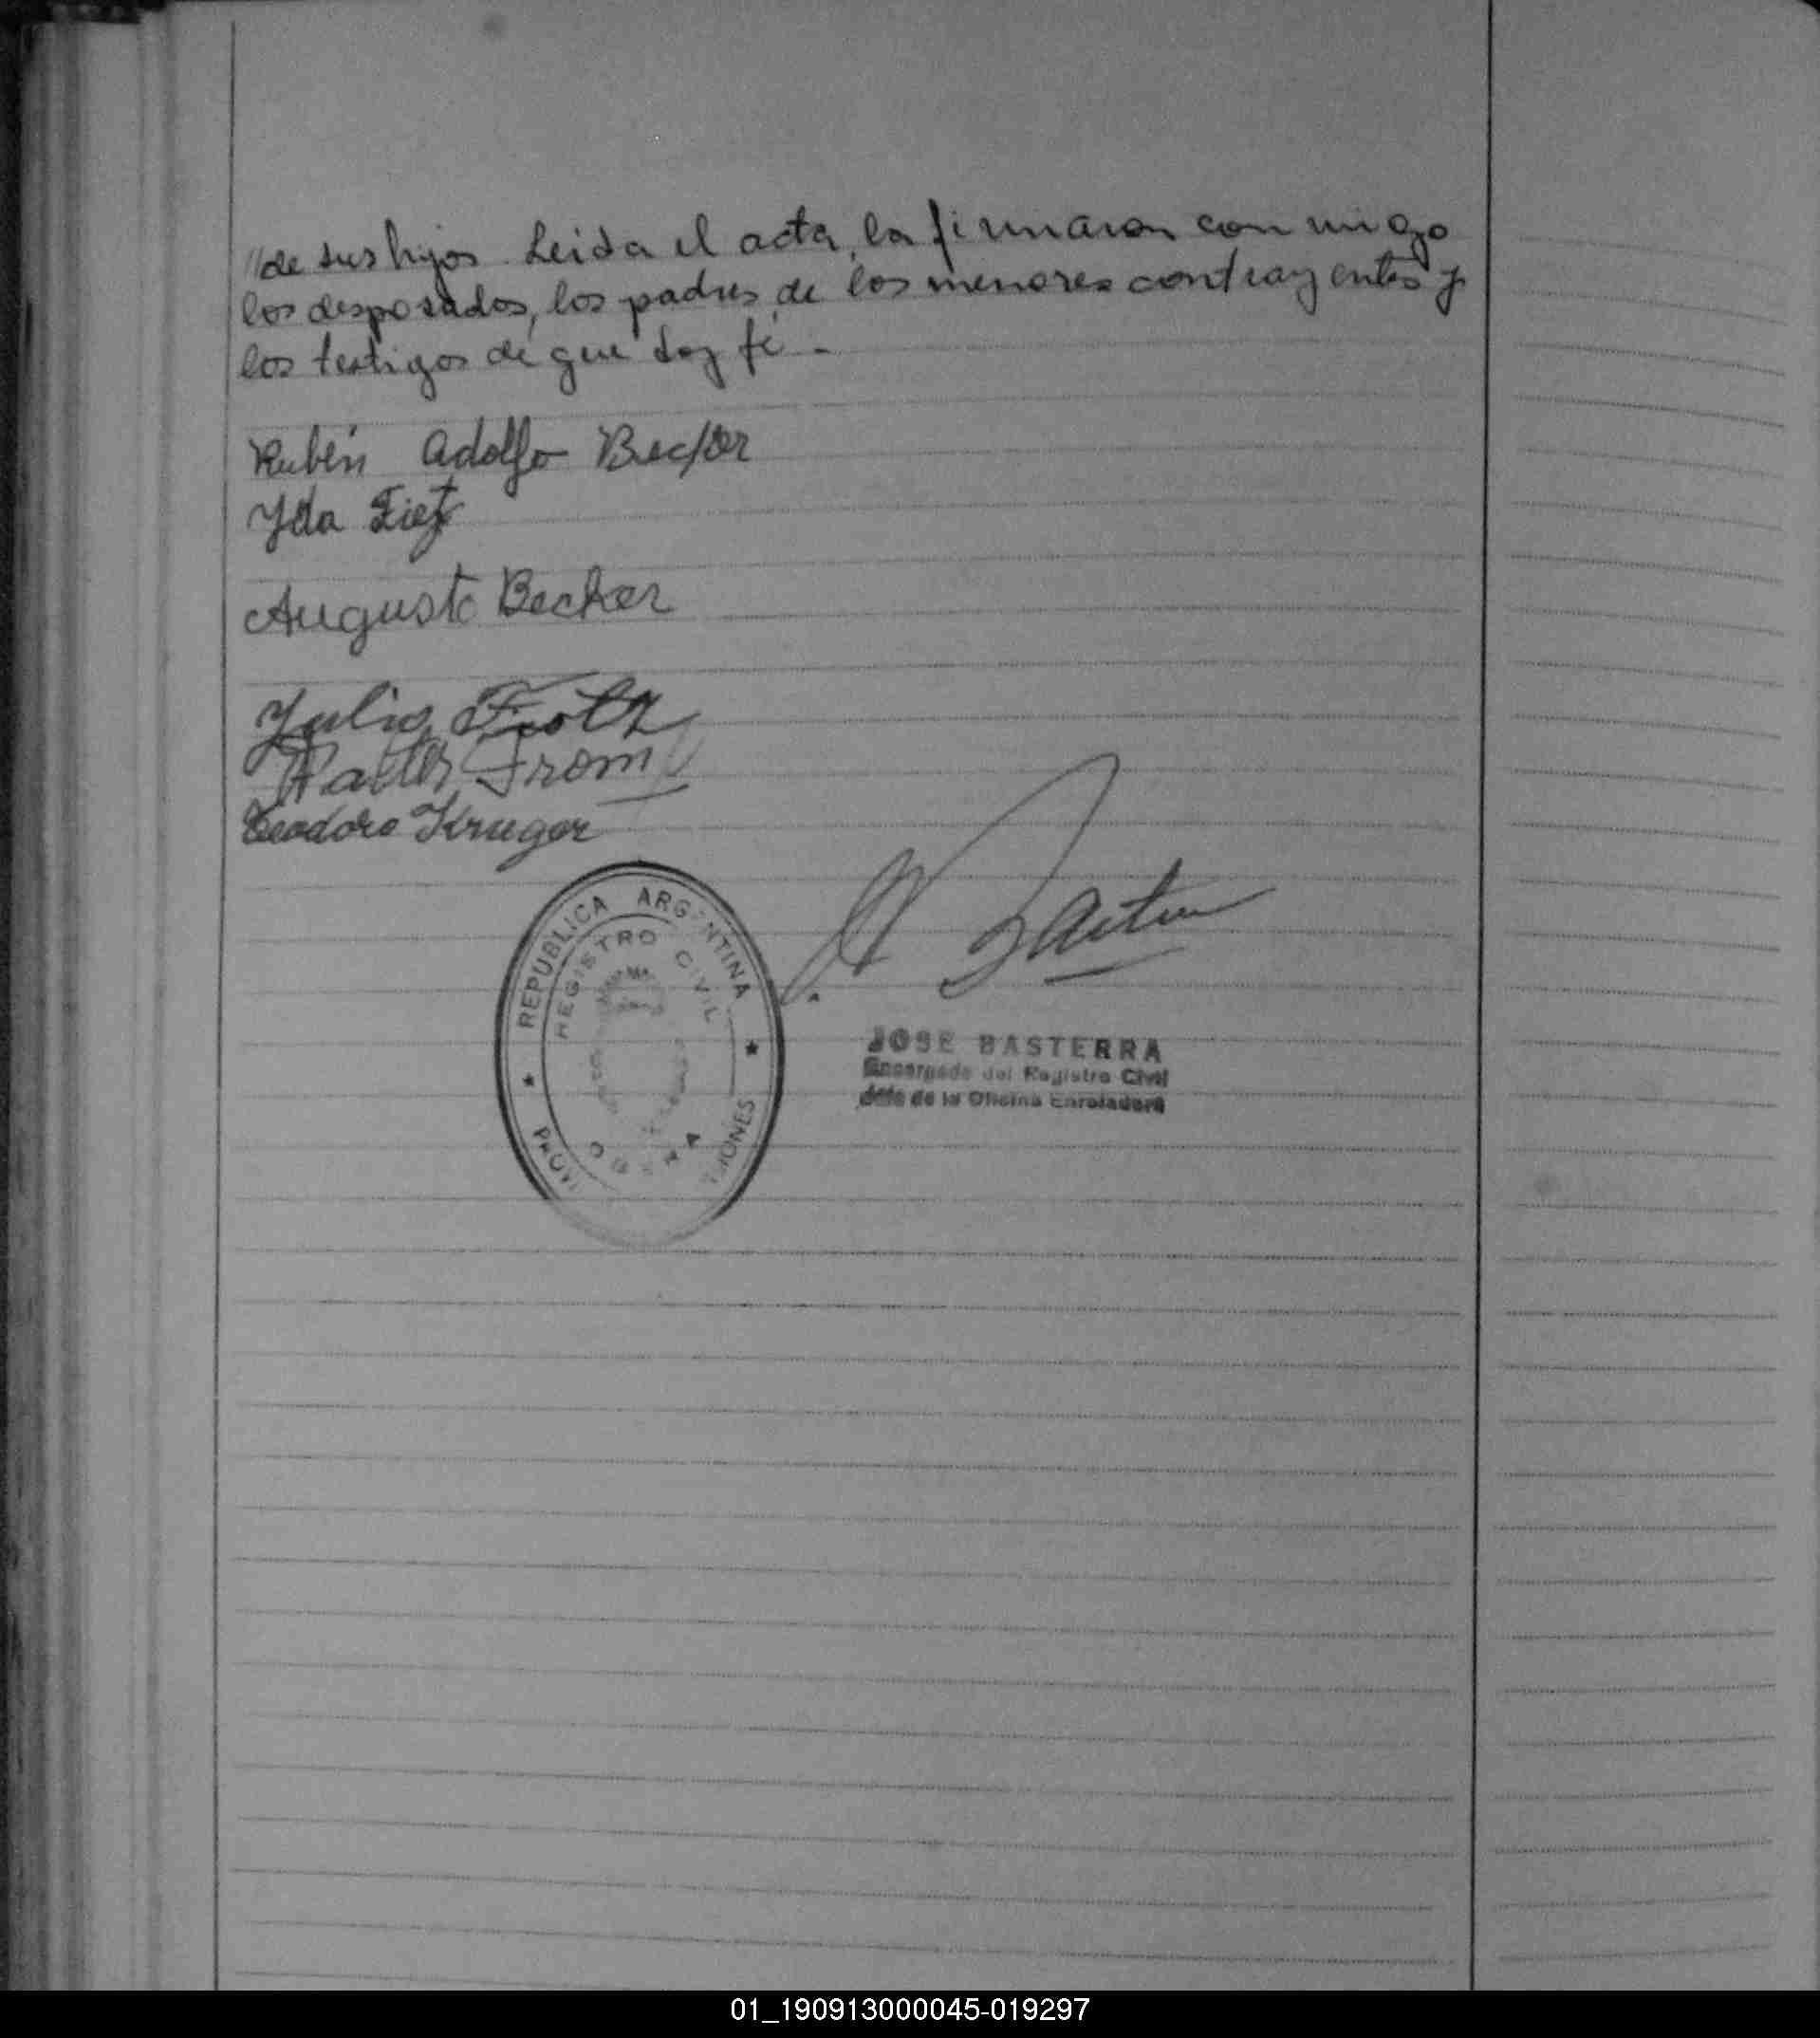 "de sus hijos. Leida el acta, la firmaron con migo
los desposados, los padres de los menores contrayentes y
los testigos de que doy fé.-
Rubén Adolfo Becker
Yda Fietz
Augusto Becker
Julio
Walter From
Teodoro Kruger
REPUBLICA ARGENTINA
REGISTRO CIVIL
OBERA
JOSE BASTERRA
Encargado del Registro Civil
Jefe de la Oficina Enroladora
01_190913000045-019297